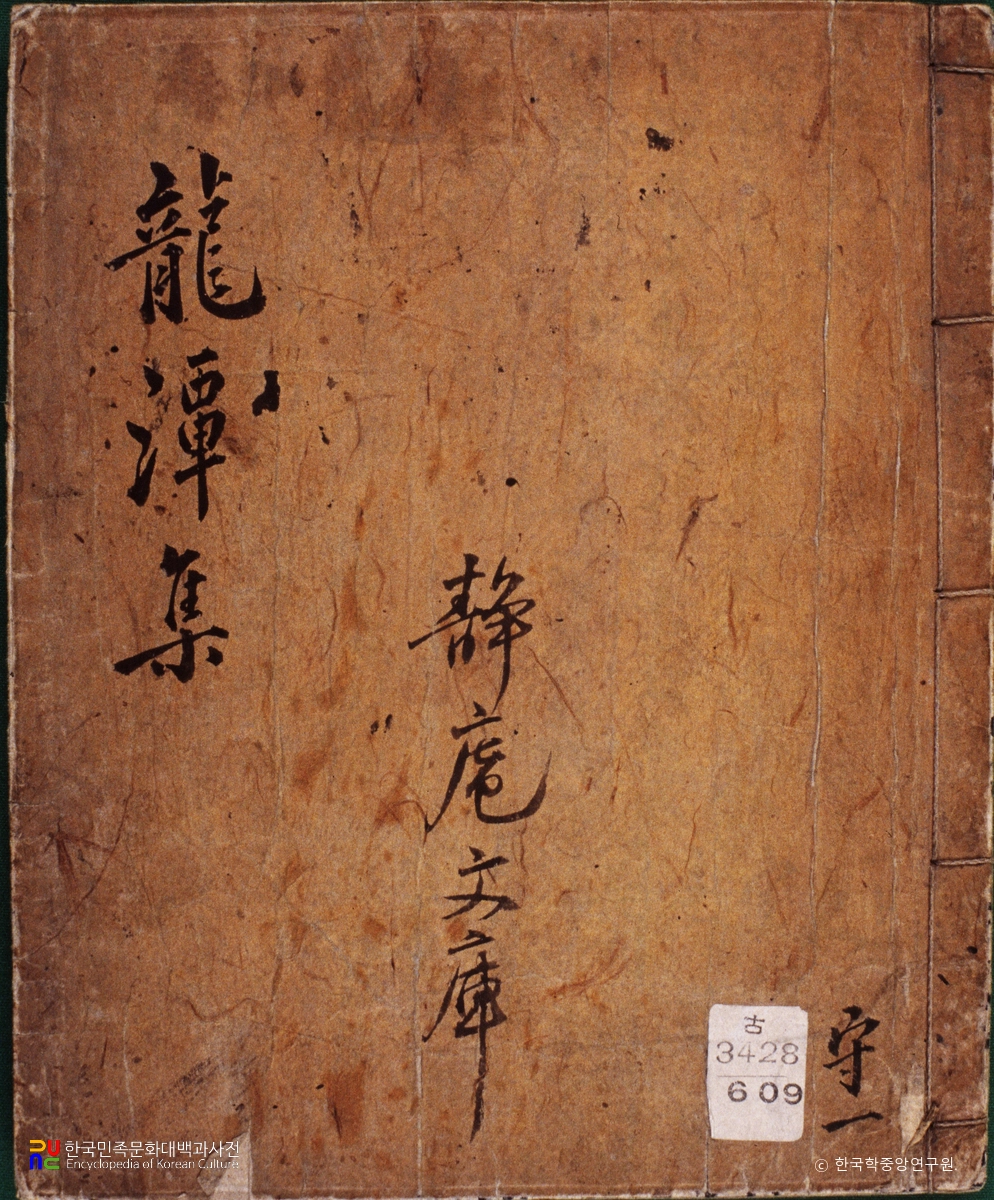 龍潭集
靜庵文庫
守一
古
3428
609
한국민족문화대백과사전
Encyclopedia of Korean Culture
© 한국학중앙연구원.